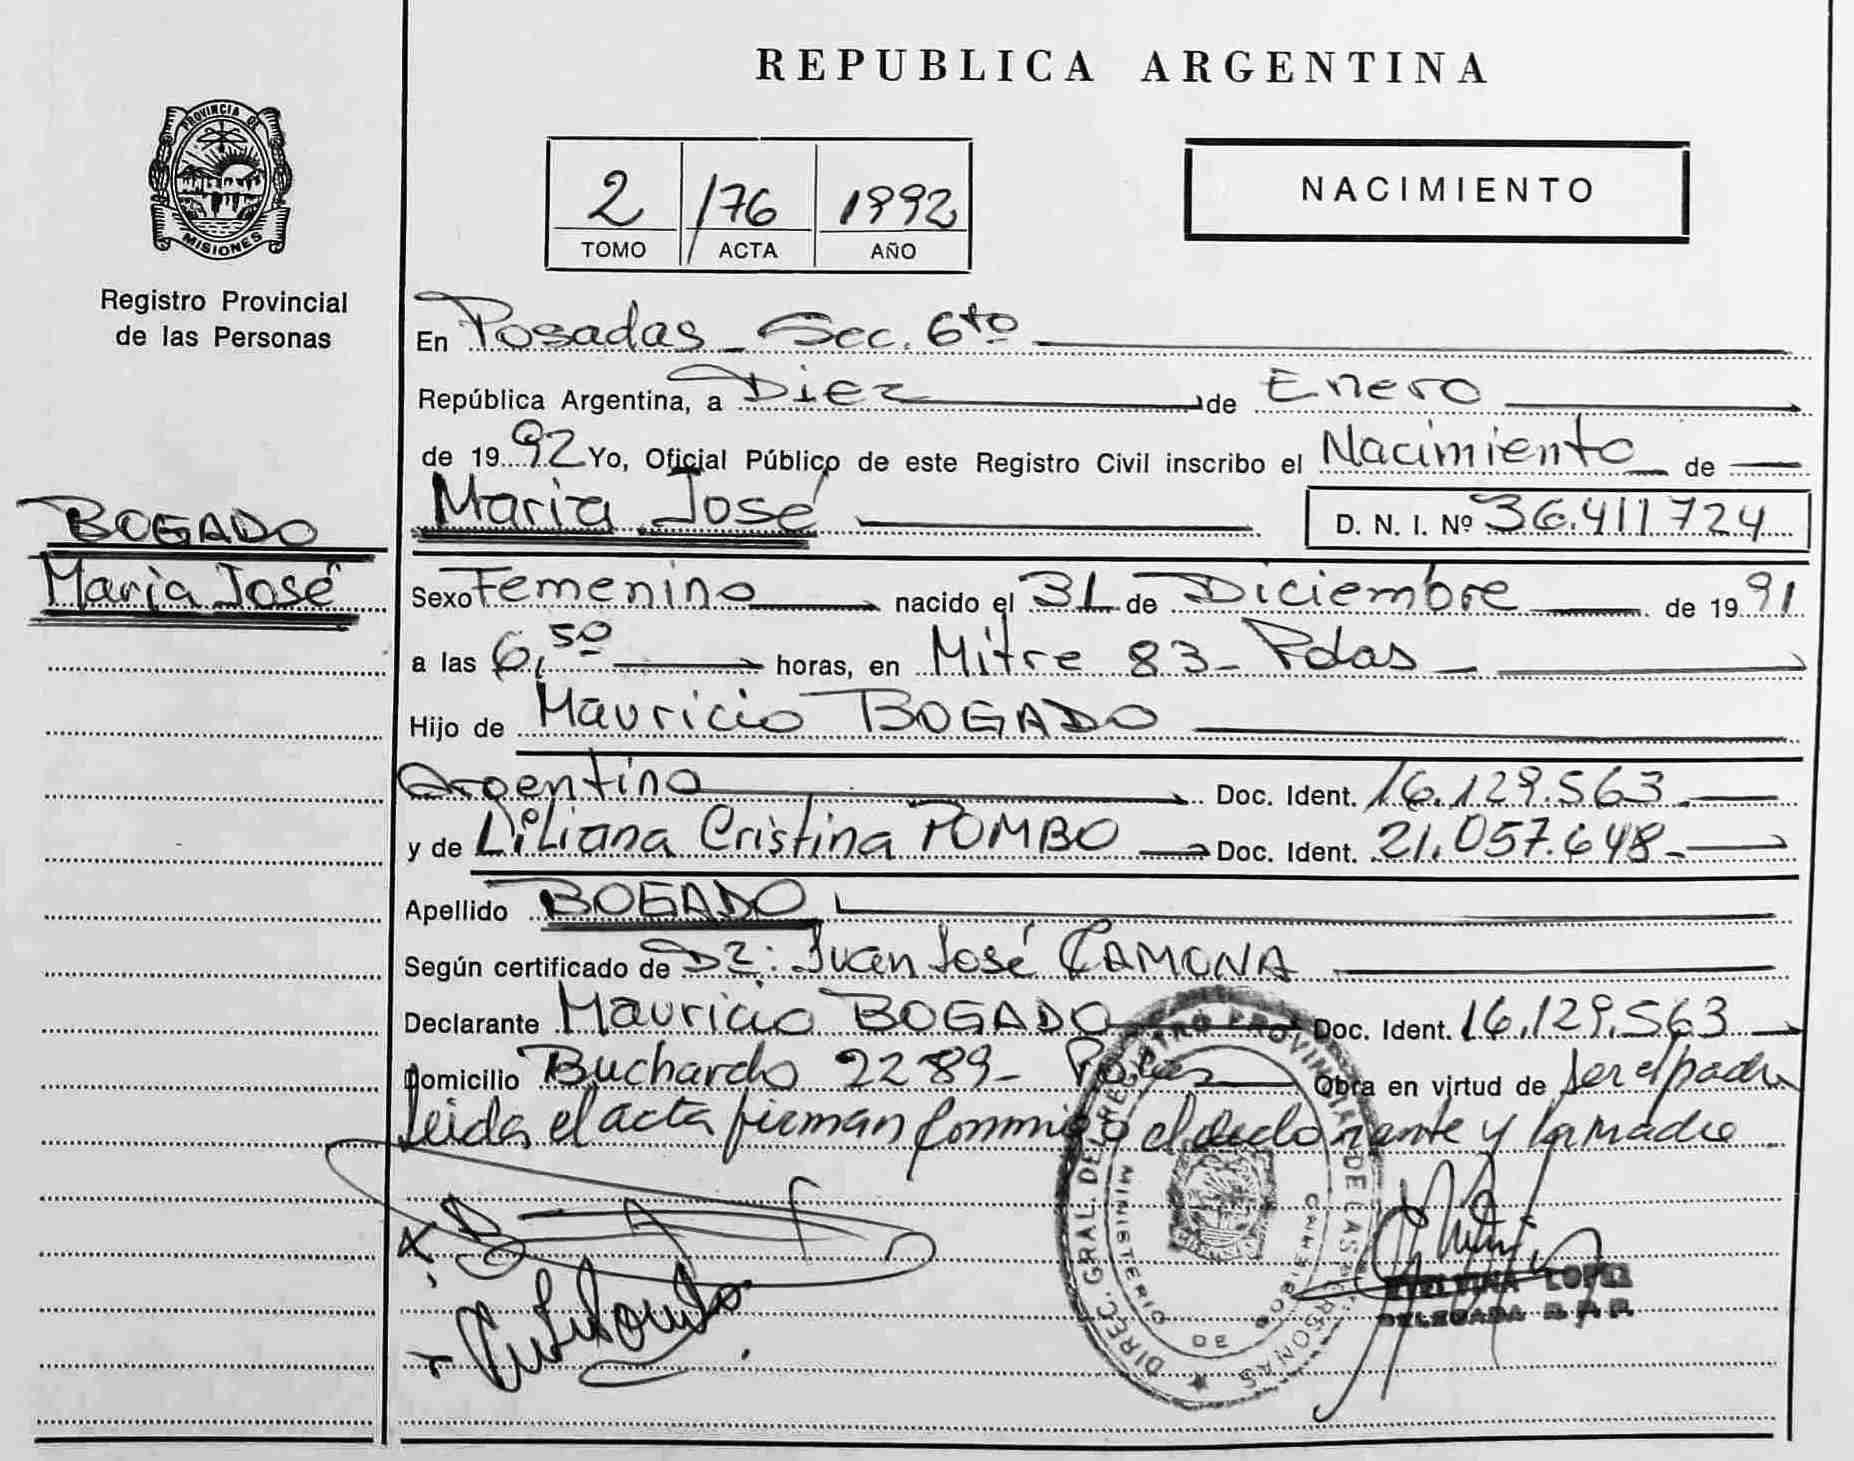 REPUBLICA ARGENTINA
PROVINCIA DE
MISIONES
Registro Provincial
de las Personas
2 176 1992
TOMO ACTA AÑO
NACIMIENTO
En Posadas - Sec. 6to
República Argentina, a Diez de Enero
de 1992 Yo, Oficial Público de este Registro Civil inscribo el Nacimiento de
María José D. N. I. Nº 36.411.724
BOGADO
María José
Sexo Femenino nacido el 31 de Diciembre de 1991
a las 6,50 horas, en Mitre 83 - Pdas -
Hijo de Mauricio BOGADO
Argentino Doc. Ident. 16.129.563.
y de Liliana Cristina POMBO Doc. Ident. 21.057.648-
Apellido BOGADO
Según certificado de Dr: Juan José CAMONA
Declarante Mauricio BOGADO Doc. Ident. 16.129.563
Domicilio Buchardo 2289- Obra en virtud de ser el padre
Leida el acta firman conmigo el declarante y la madre
DIREC. GRAL. DEL REGISTRO PROVINCIAL DE LAS PERSONAS
MINISTERIO DE GOBIERNO
LOPEZ
DELEGADA R.P.P.